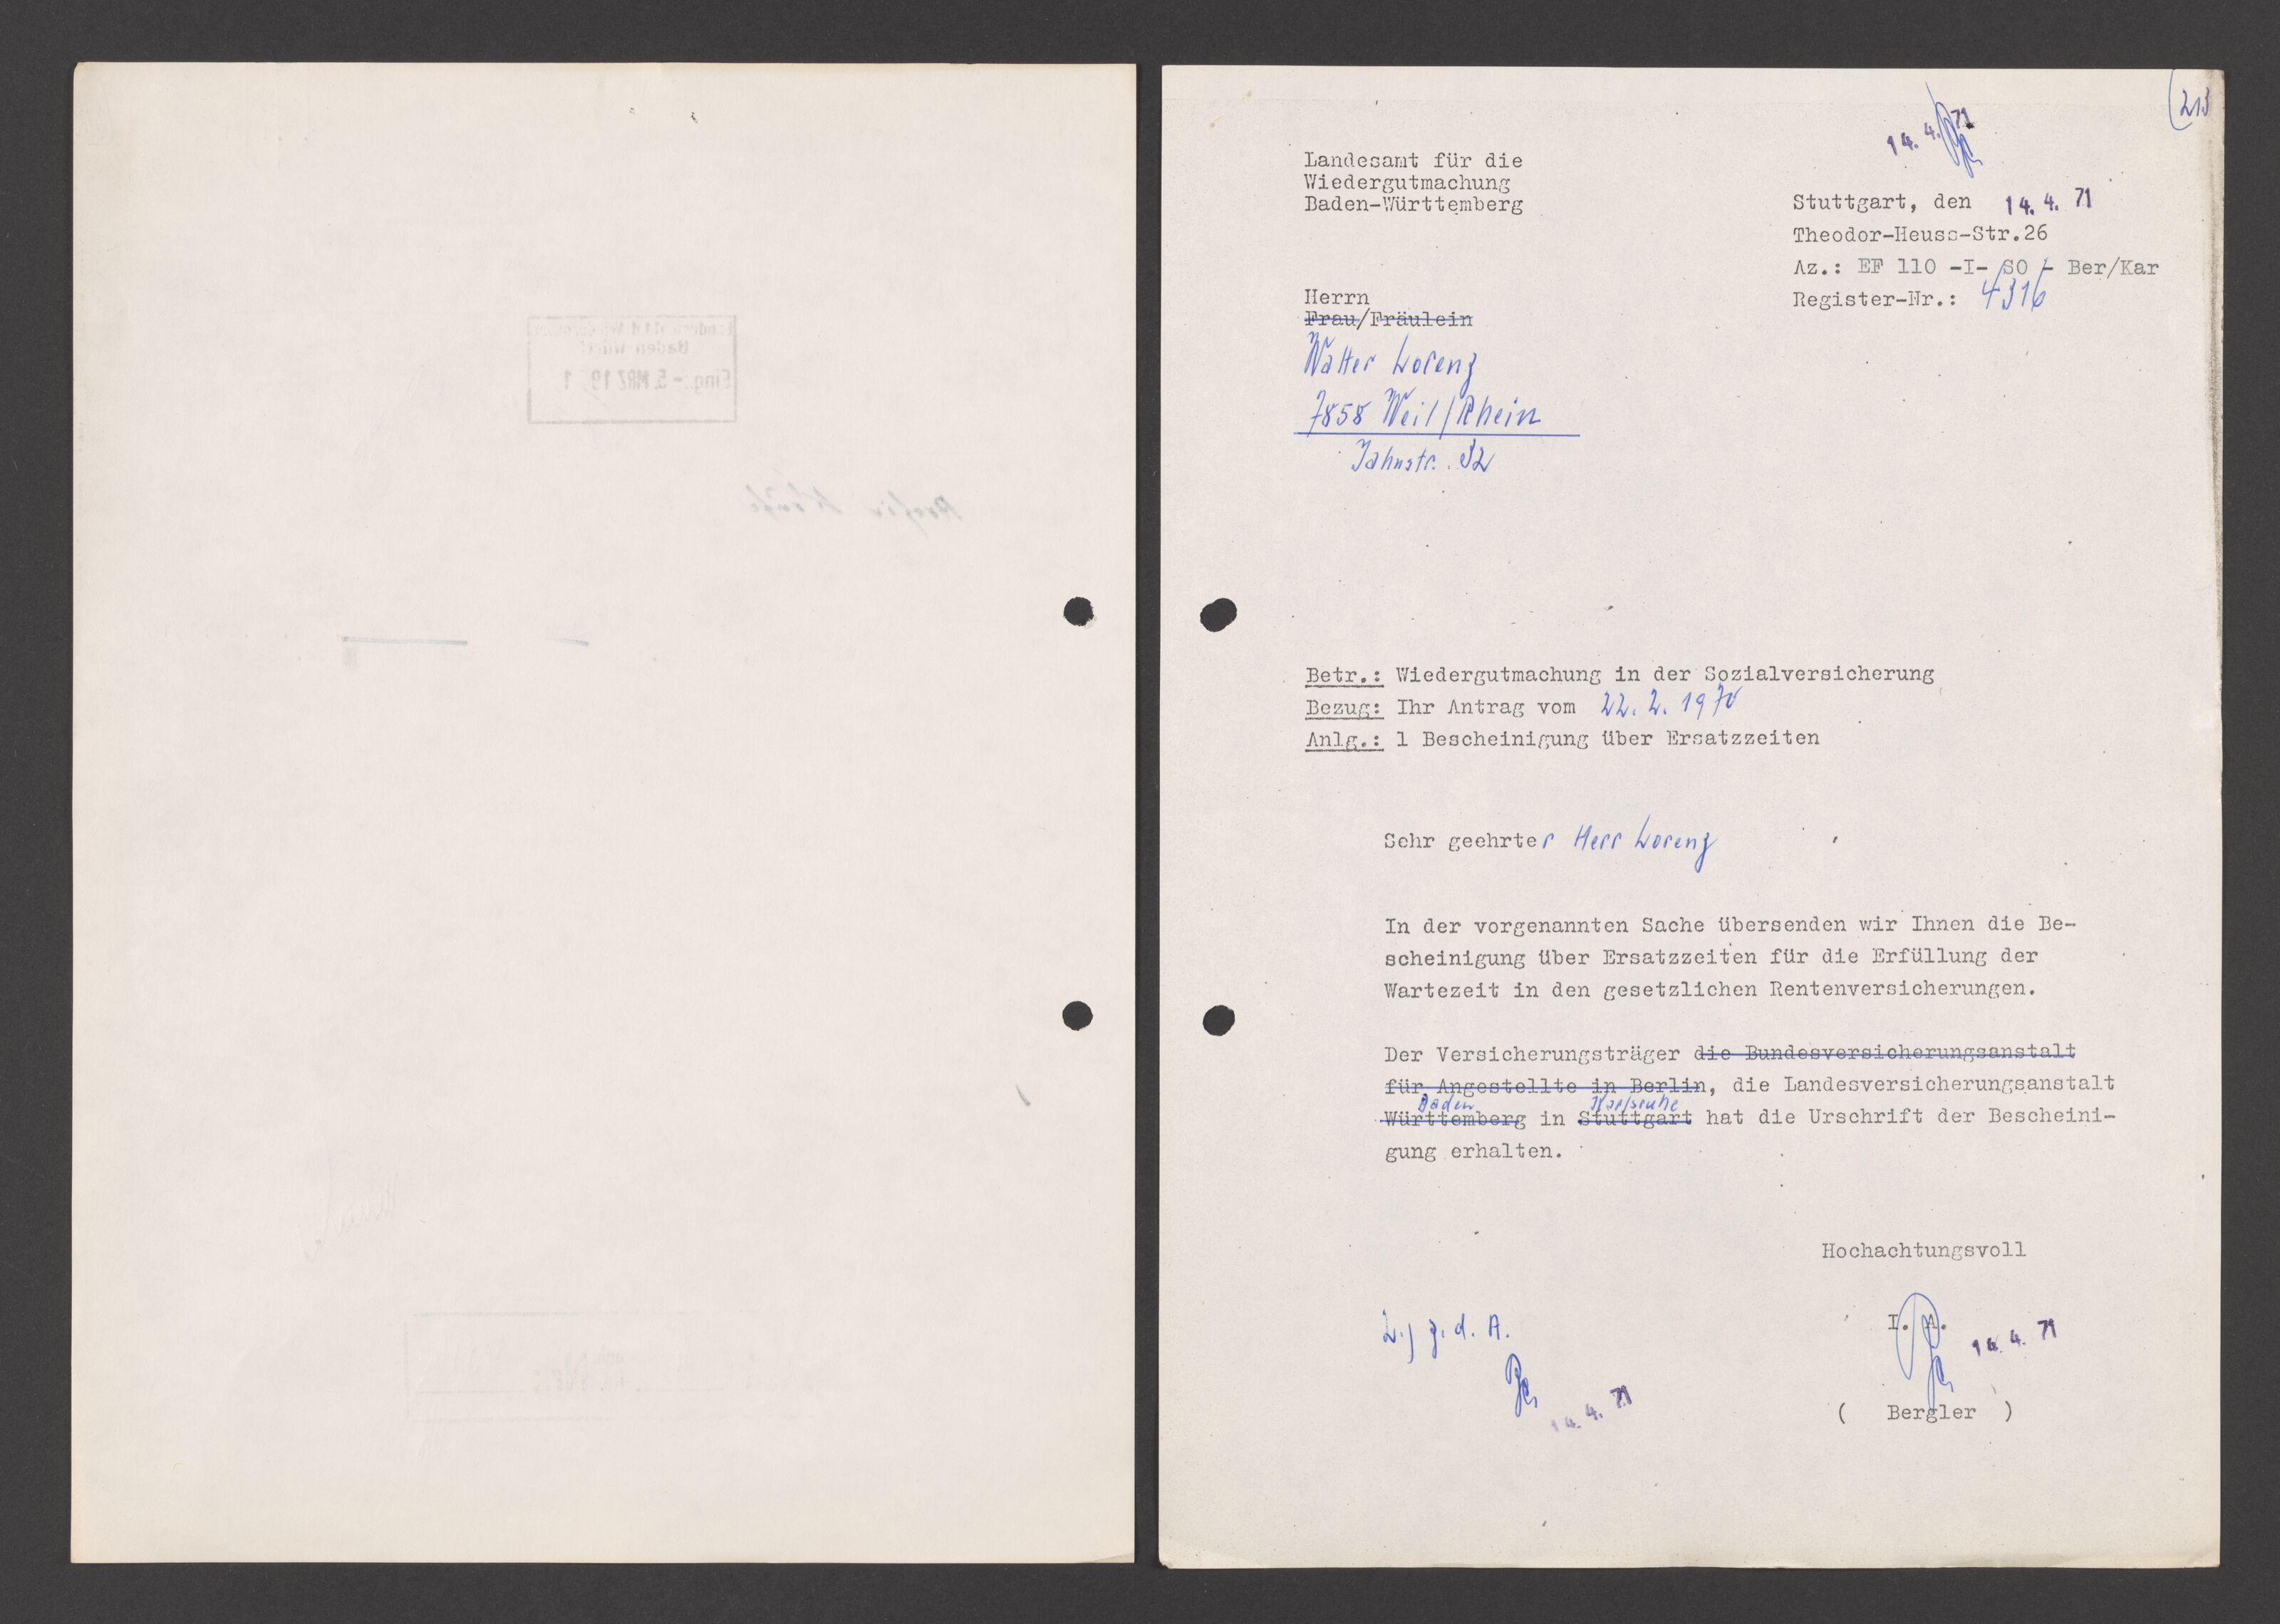 213
14. 4. 71
Landesamt für die
Wiedergutmachung
Baden-Württemberg
Stuttgart, den 14. 4. 71
Theodor-Heuss-Str.26
Az.: EF 110 -I- SO - Ber/Kar
Register-Nr.: 4316
Herrn
Frau/Fräulein
Walter Lorenz
7858 Weil/Rhein
Jahnstr. 32
Betr.: Wiedergutmachung in der Sozialversicherung
Bezug: Ihr Antrag vom 22. 2. 1970
Anlg.: 1 Bescheinigung über Ersatzzeiten
Sehr geehrter Herr Lorenz
In der vorgenannten Sache übersenden wir Ihnen die Be-
scheinigung über Ersatzzeiten für die Erfüllung der
Wartezeit in den gesetzlichen Rentenversicherungen.
Der Versicherungsträger die Bundesversicherungsanstalt
für Angestellte in Berlin, die Landesversicherungsanstalt
Baden Karlsruhe
Württemberg in Stuttgart hat die Urschrift der Bescheini-
gung erhalten.
Hochachtungsvoll
I. A.
14. 4. 71
( Bergler )
2.) z. d. A.
14. 4. 71